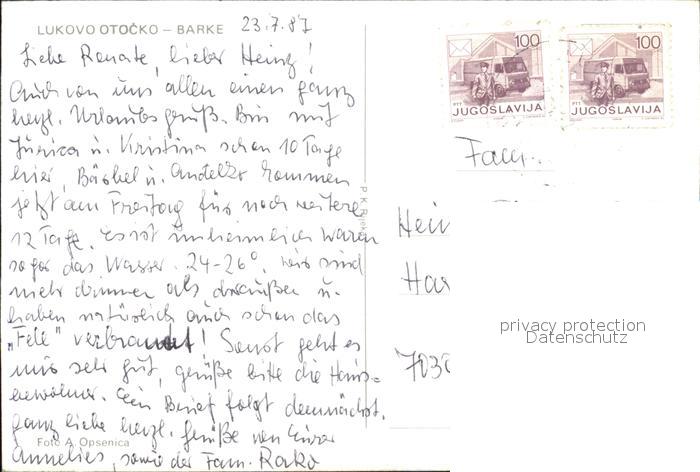 LUKOVO OTOČKO – BARKE 23.7.87
Liebe Renate, lieber Heinz!
Auch von uns allen einen ganz
herzl. Urlaubsgruß. Bin mit
Jurica u. Kristina schon 10 Tage
hier, Bärbel u. Andelko kommen
jetzt am Freitag für noch weitere
12 Tage. Es ist unheimlich warm
sogar das Wasser 24-26°, wir sind
mehr drinnen als draußen u.
haben natürlich auch schon das
"Fell" verbrannt! Sonst geht es
uns sehr gut, grüße bitte die Haus=
bewohner. Ein Brief folgt demnächst.
ganz liebe herzl. Grüße von Eurer
Foto A. Opsenica
Annelies, sowie der Fam. Rako
100
PTT
JUGOSLAVIJA
100
PTT
JUGOSLAVIJA
Fam.
Hein
Ha
703
privacy protection
Datenschutz